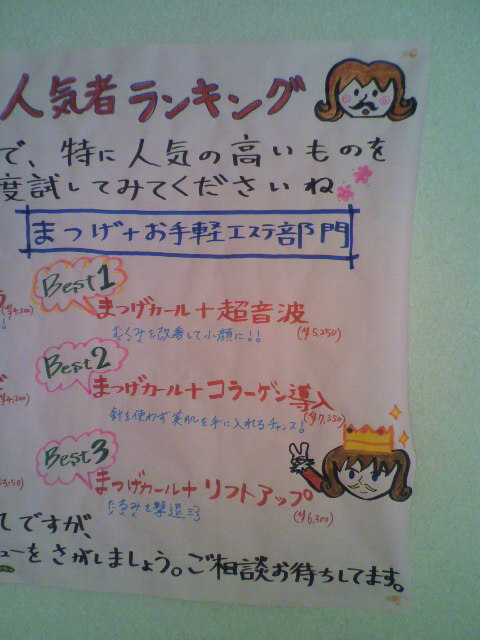 人気者ランキング
で、特に人気の高いものを
度試してみてくださいね
まつげ+お手軽エステ部門
Best1
まつげカール+超音波
(¥4,200)
むくみを改善して小顔に!!
(¥5,250)
Best2
まつげカール+コラーゲン導入
¥4,200)
(¥7,350)
針を使わず美肌を手に入れるチャンス!
Best3
まつげカール+リフトアップ
たるみを撃退
(¥6,300)
してですが、
ューをさがしましょう。ご相談お待ちしてます。